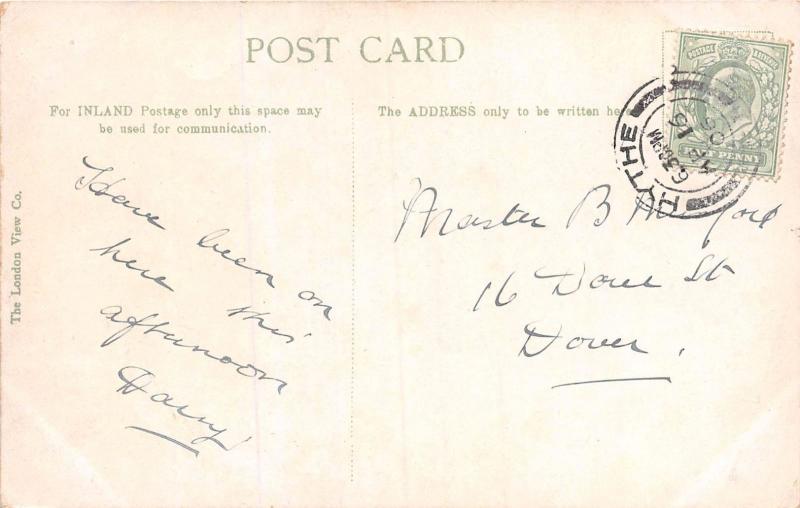 POST CARD
For INLAND Postage only this space may
be used for communication.
The ADDRESS only to be written here
POSTAGE REVENUE
PENNY
HYTHE
6 30 PM
15
05
The London View Co.
Have been on
here this
afternoon
Master B
16 Dour St
Dover,